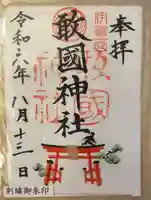 奉拝
敢國神社
令和六年八月十三日
刺繍御朱印